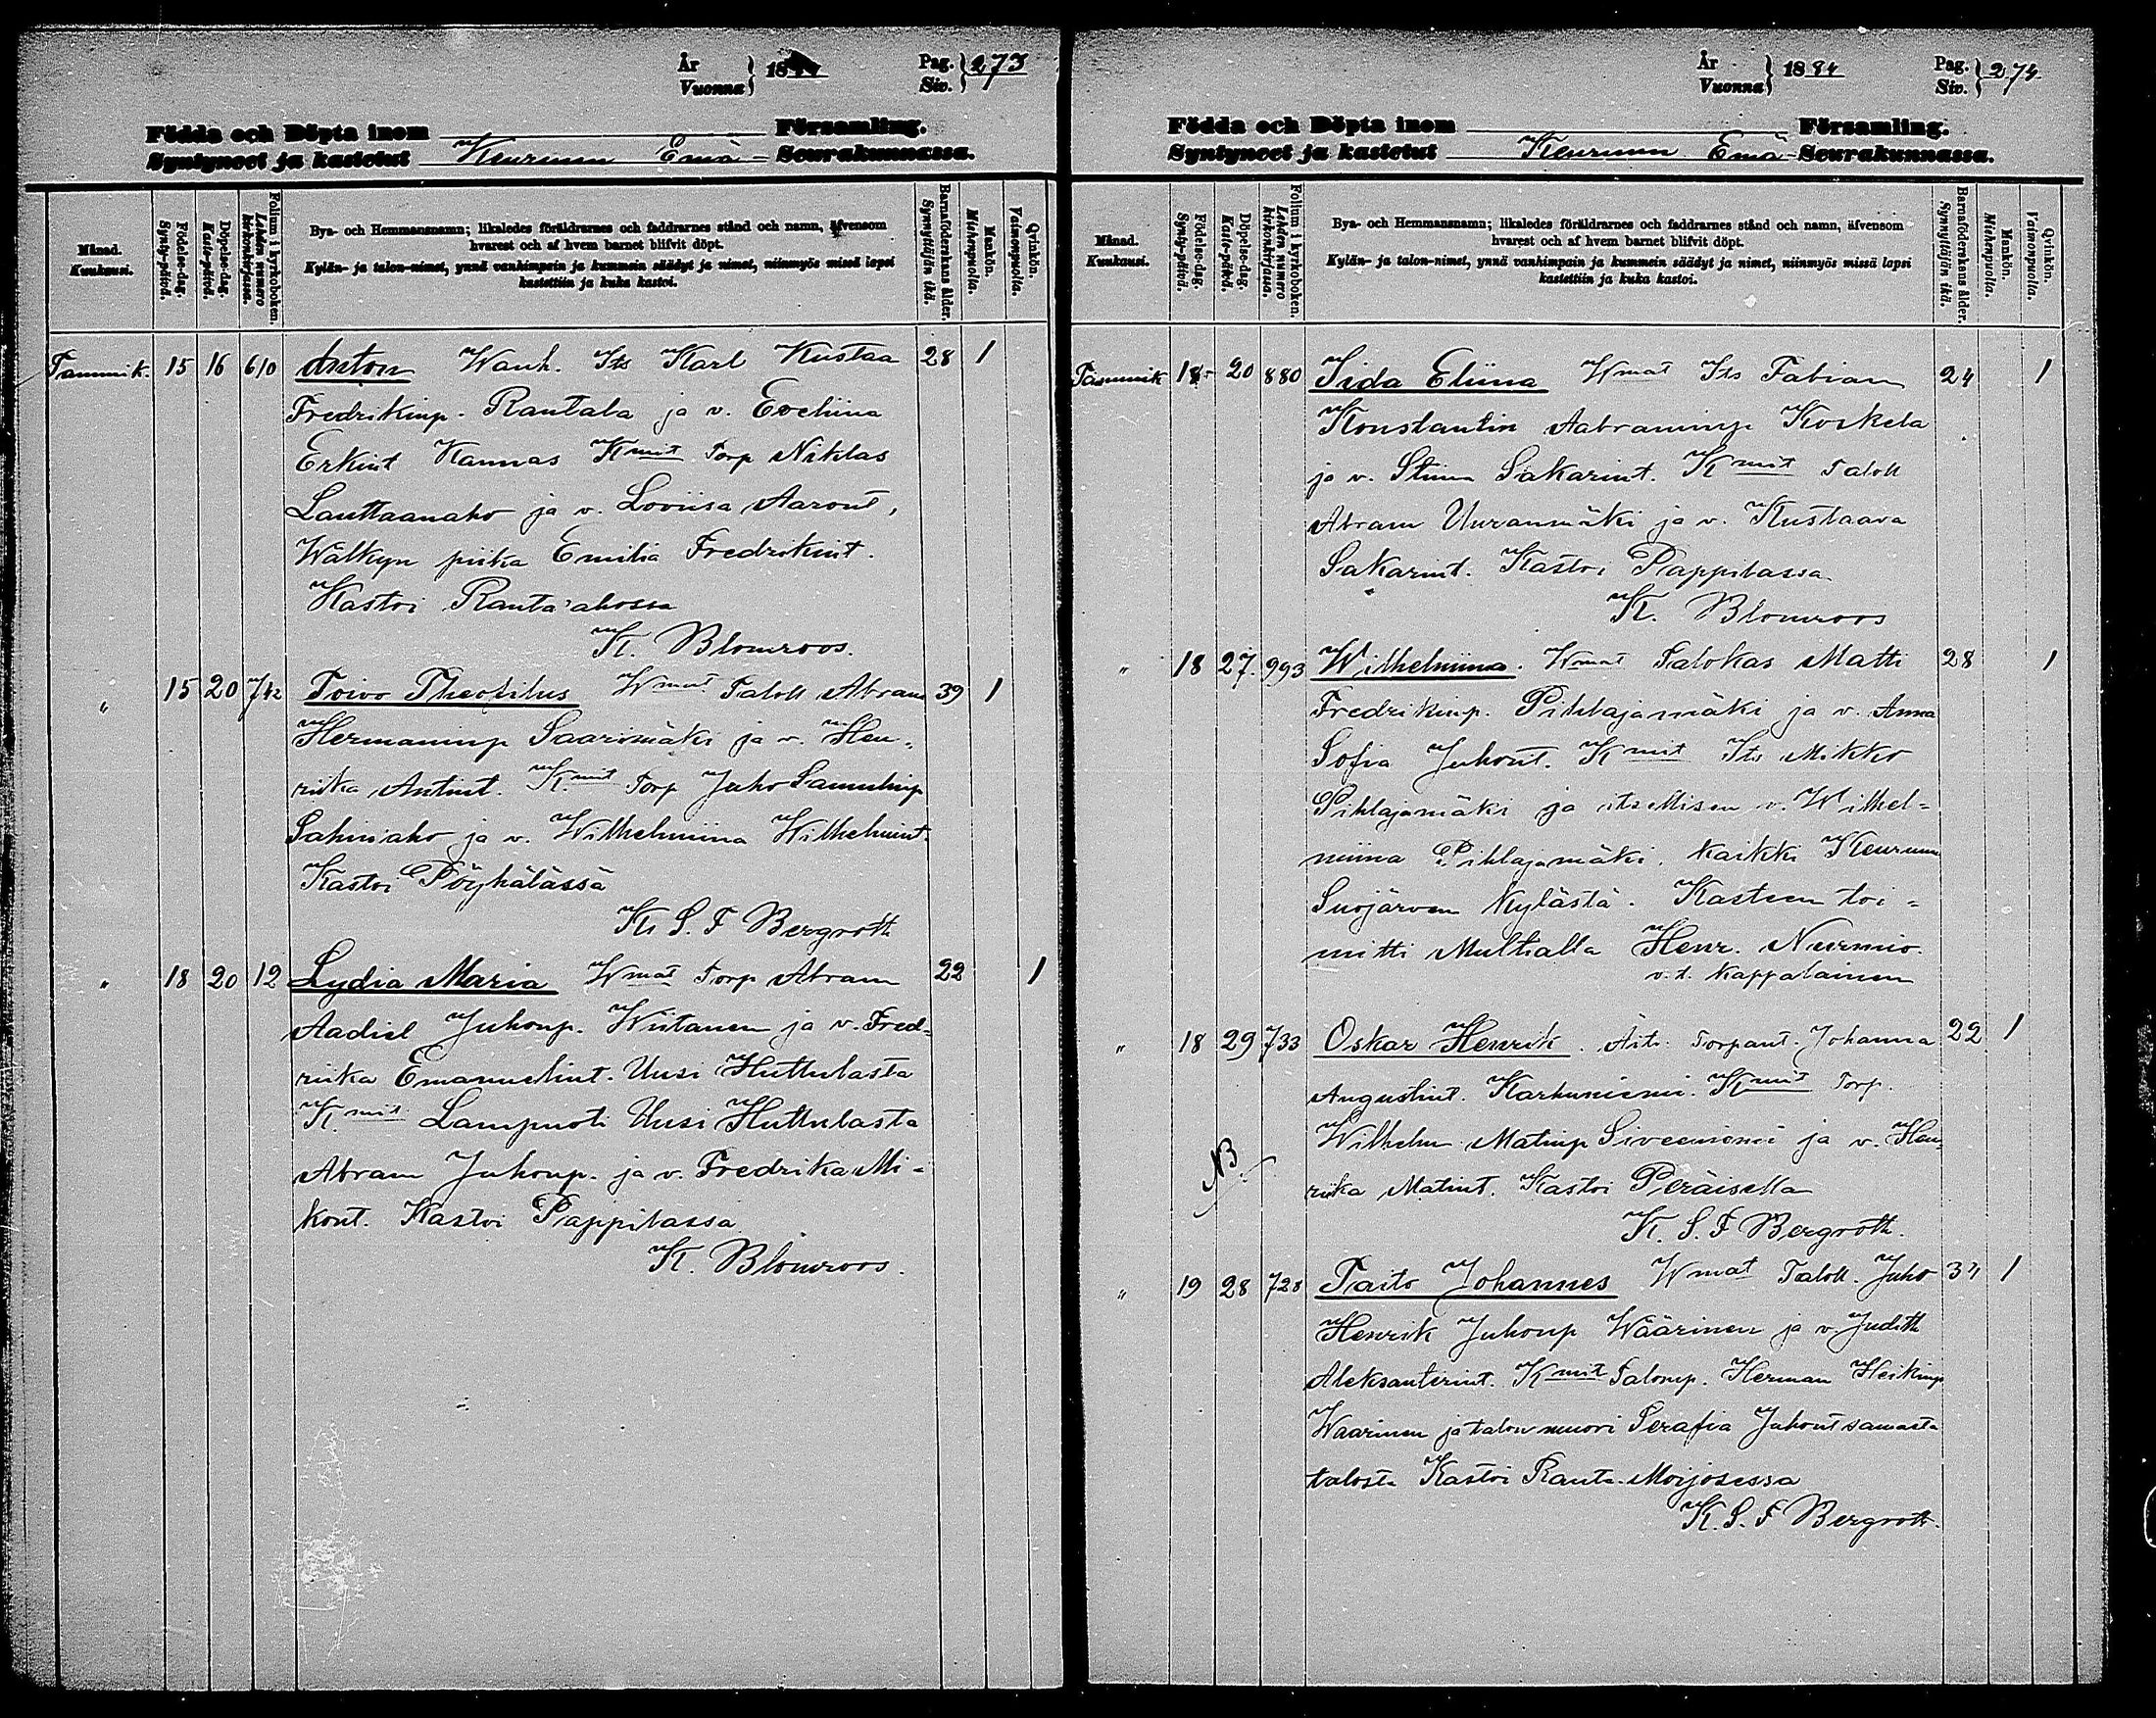 År
Vuonna } 18
Pag.
Siv. } 273
Födda och Döpta inom Församling.
Syntyneet ja kastetut Keuruun Emä- Seurakunnassa.
Månad.
Kuukausi.
Födelse-dag.
Synty-päivä.
Döpelse-dag.
Kaste-päivä.
Folium i kyrkoboken.
Lehden numero kirkonkirjassa.
Bya- och Hemmansnamn; likaledes föräldrarnes och faddrarnes stånd och namn, äfvensom
hvarest och af hvem barnet blifvit döpt.
Kylän- ja talon-nimet, ynnä vanhimpain ja kummein säädyt ja nimet, niinmyös missä lapsi
kastettiin ja kuka kastoi.
Barnaföderskans ålder.
Synnyttäjän ikä.
Mankön.
Miehenpuolia.
Qvinkön.
Vaimonpuolia.
Tammik. 15 16 610 Anton Wanh. Its Karl Kustaa 28 1
Fredrikinp. Rantala ja v. Eveliina
Erkint Kannas Kmit Torp Niklas
Lauttaanaho ja v. Loviisa Aaront,
Wälkyn piika Emilia Fredrikint.
Kastoi Ranta'ahossa
K. Blomroos.
" 15 20 742 Toivo Theofilus Wmat Taloll Abram 39 1
Hermaninp Saarimäki ja v. Hen-
riika Antint. Kmit Torp Juho Samulinp
Sahinaho ja v. Wilhelmiina Wilhelmint.
Kastoi Pöyhälässä
K. S. F Bergroth
" 18 20 12 Lydia Maria Wmat Torp Abram 22 1
Aadiel Juhonp. Wiitanen ja v. Fred-
riika Emanuelint. Uusi Huttulasta
K.mit Lampuoti Uusi Huttulasta
Abram Juhonp. ja v. Fredrika Mi-
kont. Kastoi Pappilassa
K. Blomroos.
År
Vuonna } 1884
Pag.
Siv. } 274
Födda och Döpta inom Församling.
Syntyneet ja kastetut Keuruun Emä- Seurakunnassa.
Månad.
Kuukausi.
Födelse-dag.
Synty-päivä.
Döpelse-dag.
Kaste-päivä.
Folium i kyrkoboken.
Lehden numero kirkonkirjassa.
Bya- och Hemmansnamn; likaledes föräldrarnes och faddrarnes stånd och namn, äfvensom
hvarest och af hvem barnet blifvit döpt.
Kylän- ja talon-nimet, ynnä vanhimpain ja kummein säädyt ja nimet, niinmyös missä lapsi
kastettiin ja kuka kastoi.
Barnaföderskans ålder.
Synnyttäjän ikä.
Mankön.
Miehenpuolia.
Qvinkön.
Vaimonpuolia.
Tammik 18 20 880 Iida Eliina Wmat Its Fabian 24 1
Konstantin Aabraminp Koskela
ja v. Stiina Sakarint. Kmit Taloll
Abram Uuranmäki ja v. Kustaava
Sakarint. Kastoi Pappilassa
K. Blomroos
" 18 27. 993 Wilhelmiina. Wmat Talokas Matti 28 1
Fredrikinp. Pihlajamäki ja v. Anna
Sofia Juhont. Kmit Its Mikko
Pihlajamäki ja itsellisen v. Wilhel=
miina Pihlajamäki. kaikki Keuruun
Suojärven kylästä. Kasteen toi=
mitti Multialla Henr. Nurmio.
v.t. Kappalainen
" 18 29 733 Oskar Henrik. Äiti Torpant. Johanna 22 1
Augustint. Karhuniemi. Kmit Torp.
NB Wilhelm Matinp Siveeniemi ja v. Hen-
riika Matint. Kastoi Peräisellä
K. S. F Bergroth.
" 19 28 728 Taito Johannes Wmat Taloll. Juho 34 1
Henrik Juhonp Wäärinen ja v. Judith
Aleksanterint. Kmit Talonp. Herman Heikinp
Waarinen ja talon muori Serafia Juhont samasta
talosta Kastoi Ranta-Moijosessa
K. S. F Bergroth.